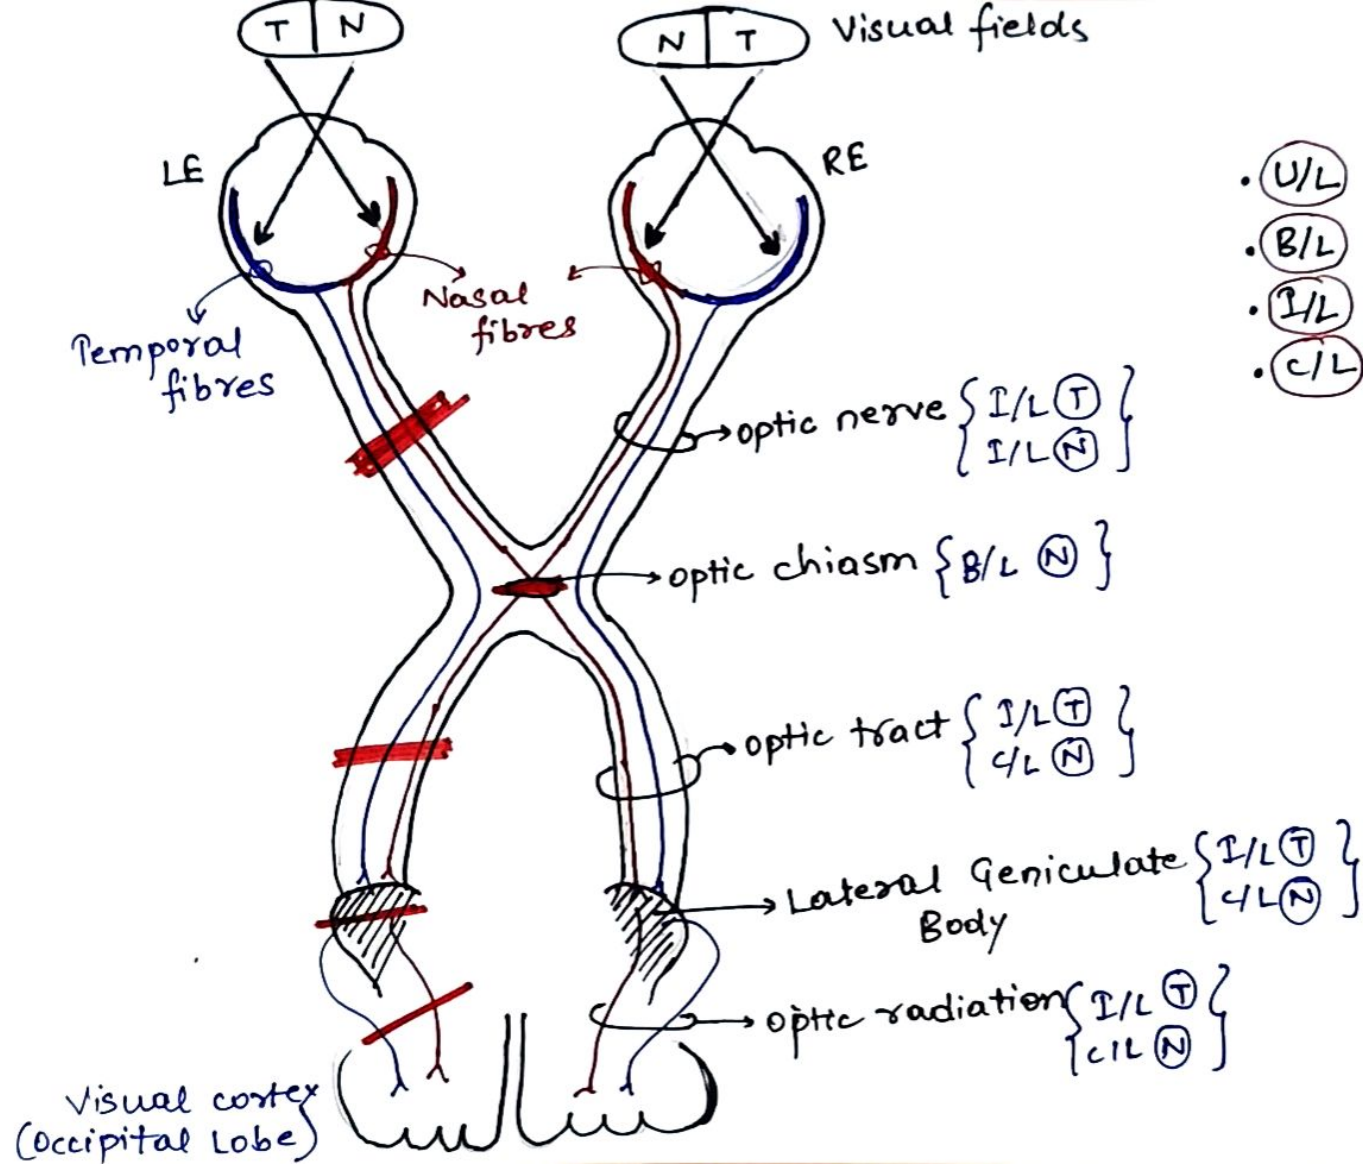 T N
N T
Visual fields
LE
RE
• U/L
• B/L
• I/L
• C/L
Nasal
fibres
Temporal
fibres
optic nerve { I/L T }
{ I/L N }
optic chiasm { B/L N }
optic tract { I/L T }
{ C/L N }
Lateral Geniculate { I/L T }
Body { C/L N }
optic radiation { I/L T }
{ C/L N }
Visual cortex
(occipital Lobe)